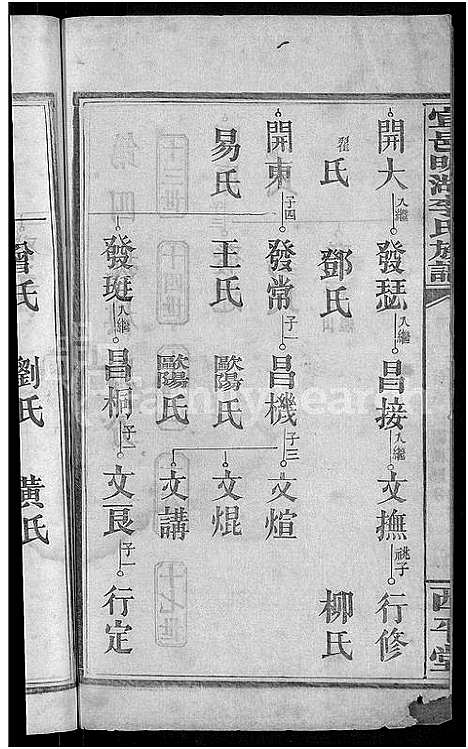 宜邑明湖李氏族譜
西平堂
開大 入繼 發瑟 入繼 昌接 入繼 文撫 祧子 行修
翟氏 鄧氏 柳氏
開東 子四 發常 子一 昌機 子三 文煊
易氏 王氏 歐陽氏 文焜
歐陽氏 文講
發珽 入繼 昌桐 子一 文艮 子一 行定
曾氏 劉氏 黃氏